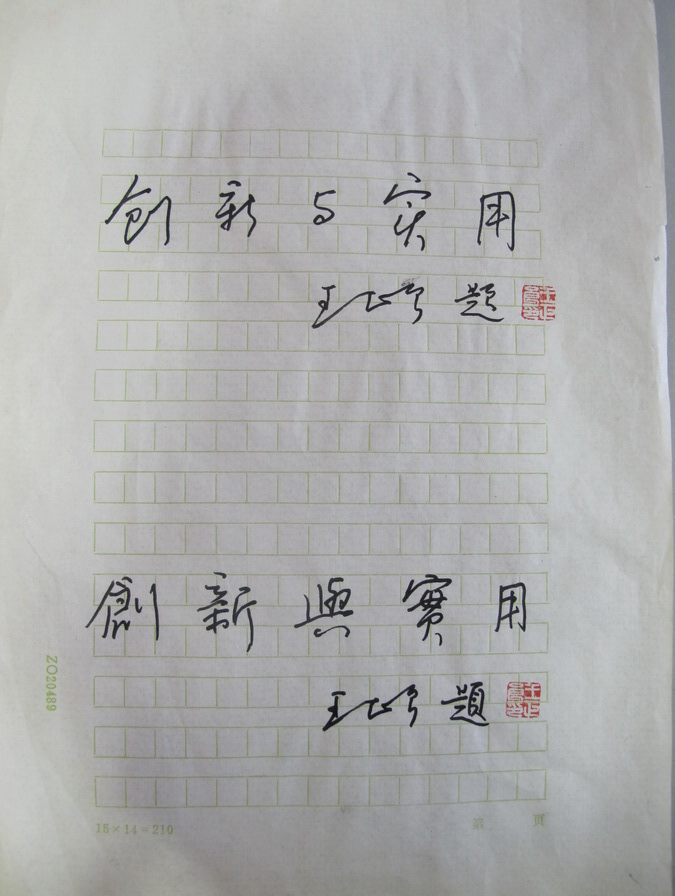 创新与实用
王正 题
創新與實用
王正 題
ZO20489
15×14=210
第 頁